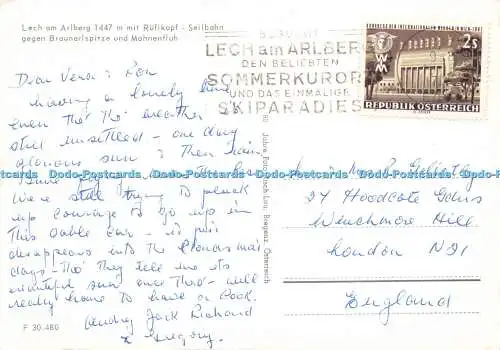 Lech am Arlberg 1447 m mit Rüfikopf - Seilbahn
gegen Braunarlspitze und Mohnenfluh
BESUCHT
LECH am ARLBERG
DEN BELIEBTEN
SOMMERKURORT
UND DAS EINMALIGE
SKIPARADIES
KONGRESS DER INTERNATIONALEN MESSEN WIEN
2 S
REPUBLIK ÖSTERREICH
Dear Vera & Ron
having a lovely time
even tho' the weather is
still unsettled - one day
glorious sun & then rain
some
We're still trying to pluck
up courage to go up in
this cable car - it just
disappears into the clouds
days - tho' they tell me its
beautiful sun once thro' - we'll
really have to have a look.
Audrey Jack Richard
& Gregory.
Mr & Mrs R
24 Woodcote Gdns
Winchmore Hill
London N21
England
F 30.480
Dodo-Postcards Dodo-Postcards Dodo-Postcards Dodo-Postcards Dodo-Postcards Dodo-Postcards